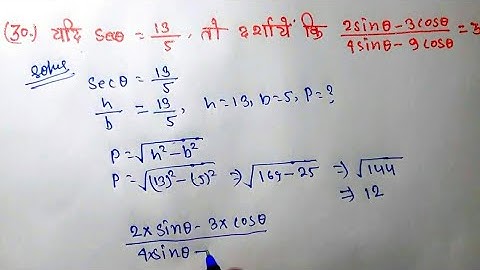 (30.) यदि secθ = 13/5, तो दर्शायें कि (2sinθ-3cosθ)/(4sinθ-9cosθ) = 3
secθ = 13/5
h/b = 13/5, h=13, b=5, P=?
P=√(h²-b²)
P=√((13)²-(5)²) ⇒ √(169-25) ⇒ √144
⇒ 12
2×sinθ-3×cosθ
4×sinθ-